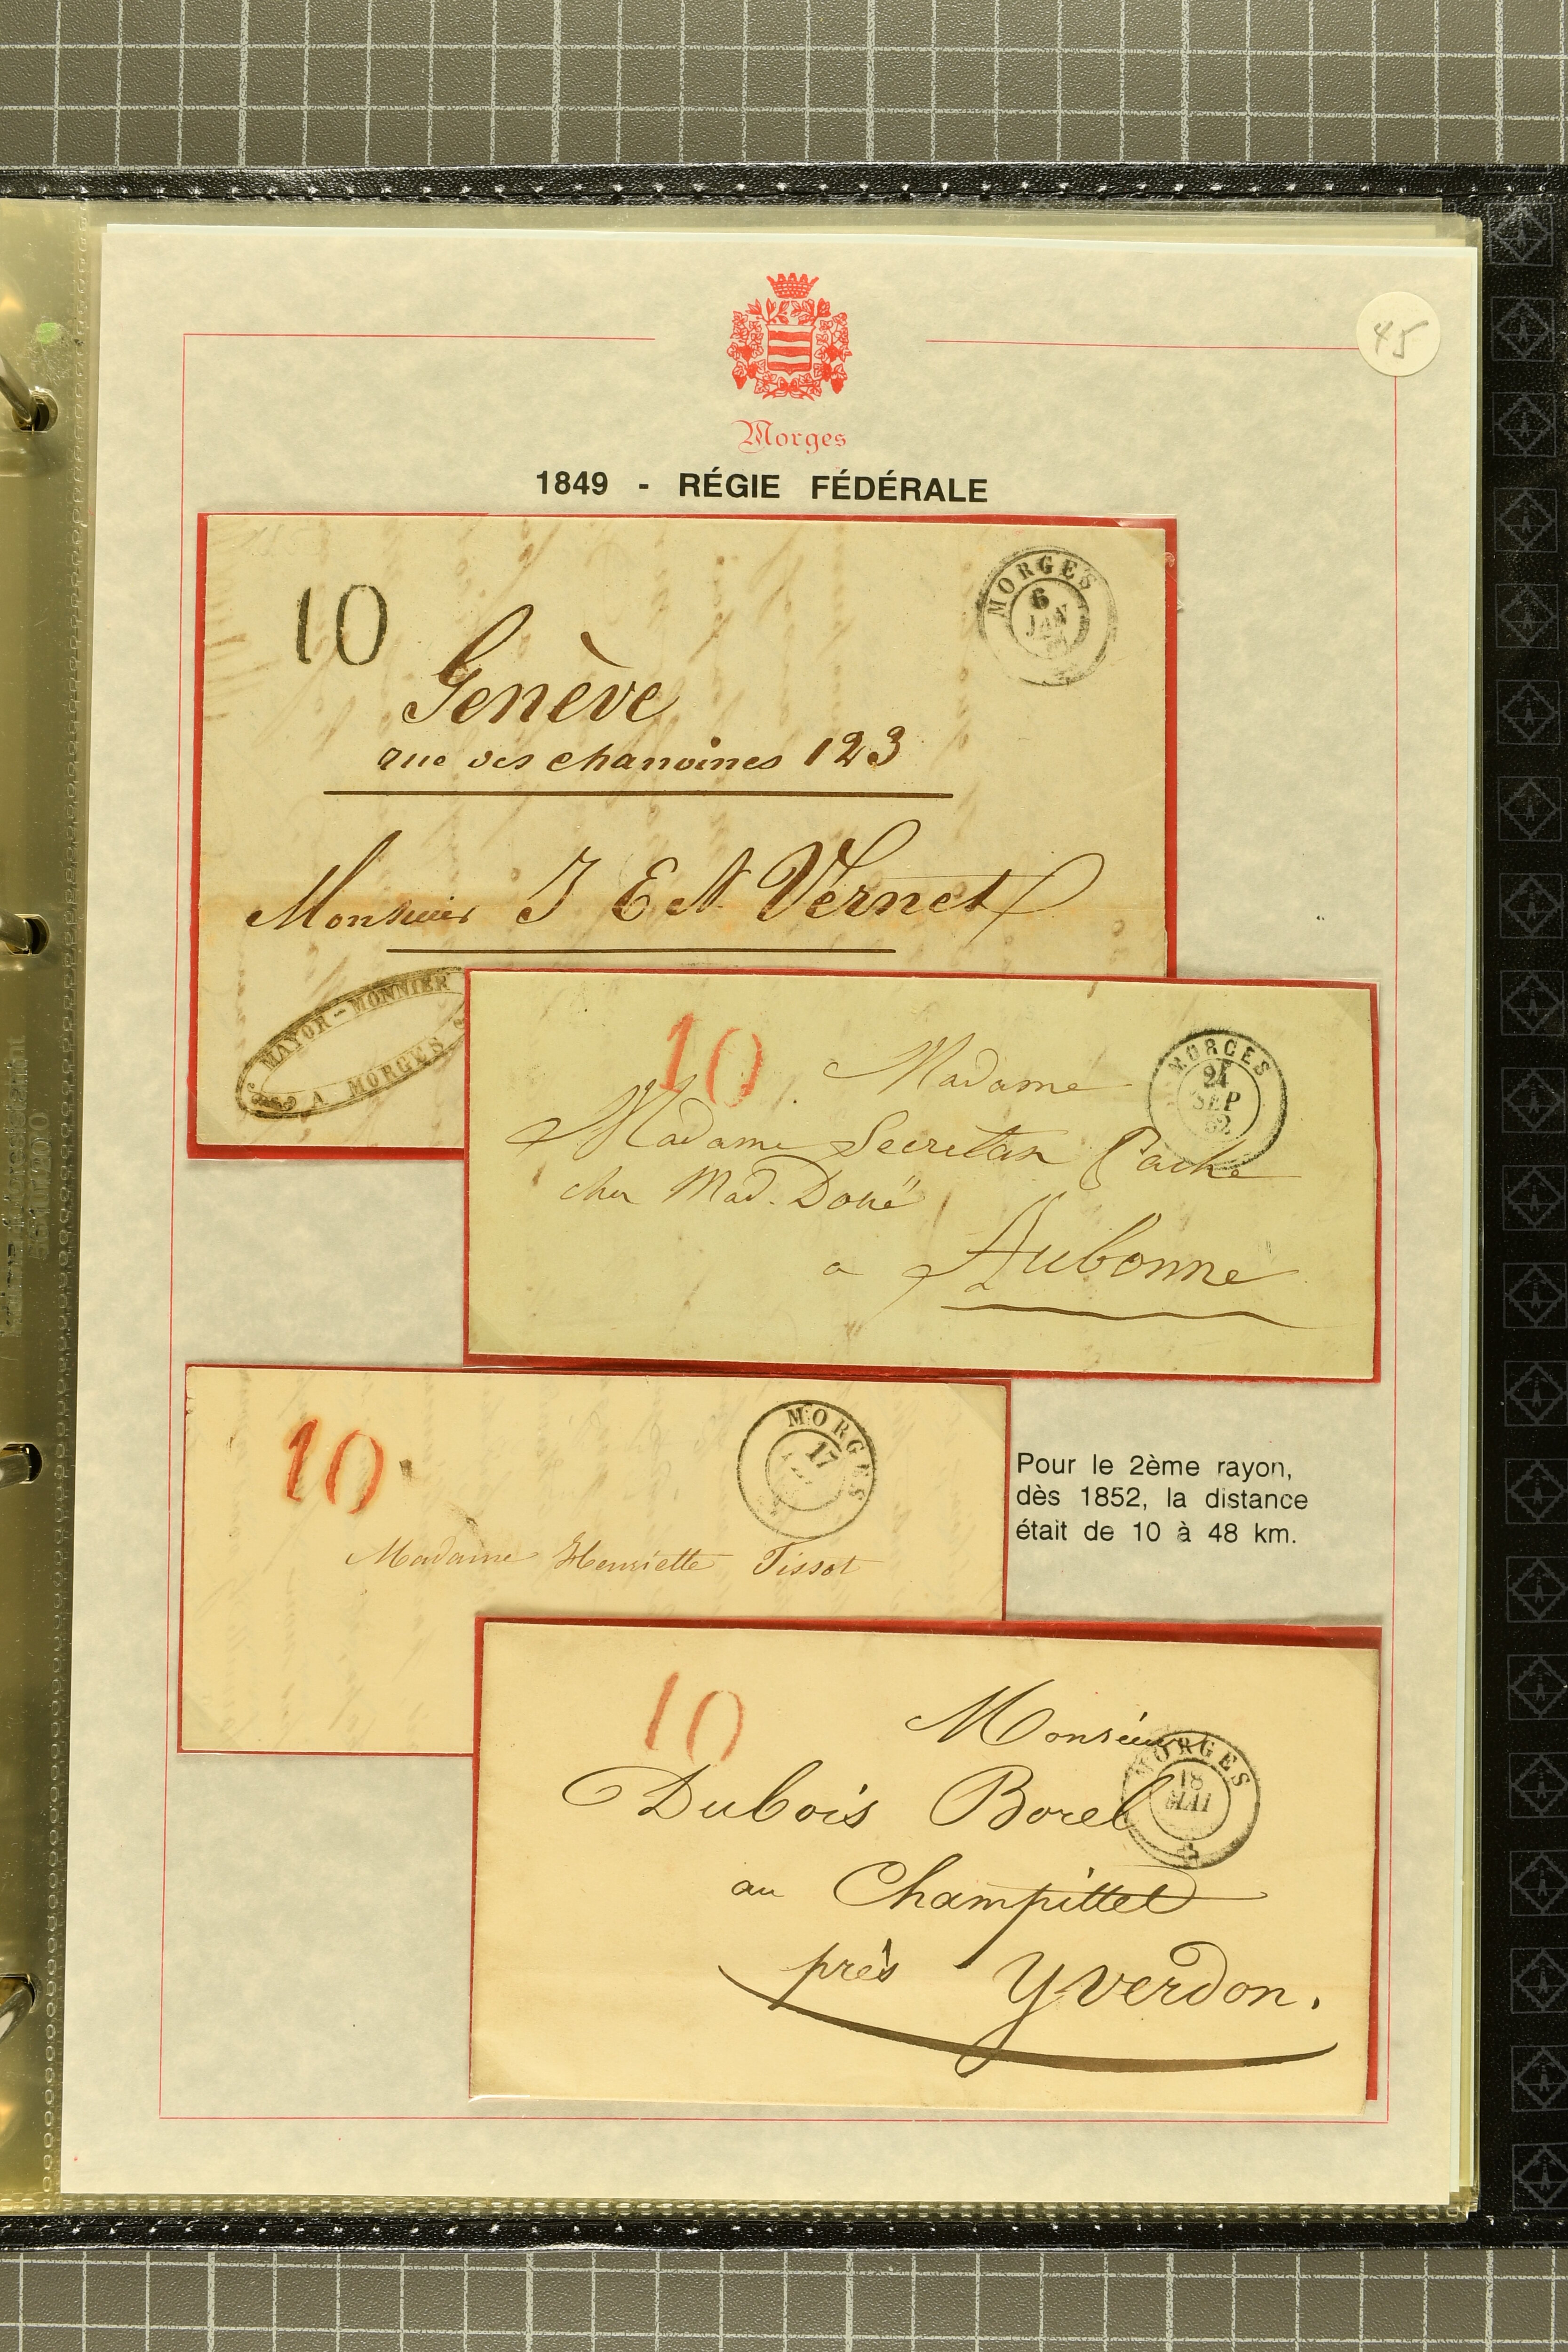 45
Morges
1849 - RÉGIE FÉDÉRALE
10
MORGES
6
JAN
Genève
rue des chanoines 123
Monsieur J E N Vernet
MAYOR-MONNIER
A MORGES
10
MORGES
24
SEP
52
Madame
Madame Secretan Pache
chez Mad. Doué
a Aubonne
10
MORGES
17
Madame Henriette Tissot
Pour le 2ème rayon,
dès 1852, la distance
était de 10 à 48 km.
10
MORGES
18
MAI
Monsieur
Dubois Borel
au Champittet
près Yverdon.